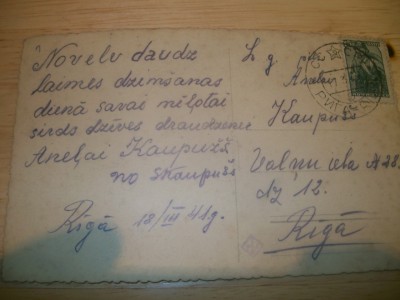 Novelu daudz
laimes dzimšanas
dienā savai mīļotai
sirds dzīves draudzenei
Aneļai Kaupužš
no Skaupužš
Rīgā 18/III 41g.
L g
Aneļai
Kaupužš
Valmieras
dz 12.
Rīgā